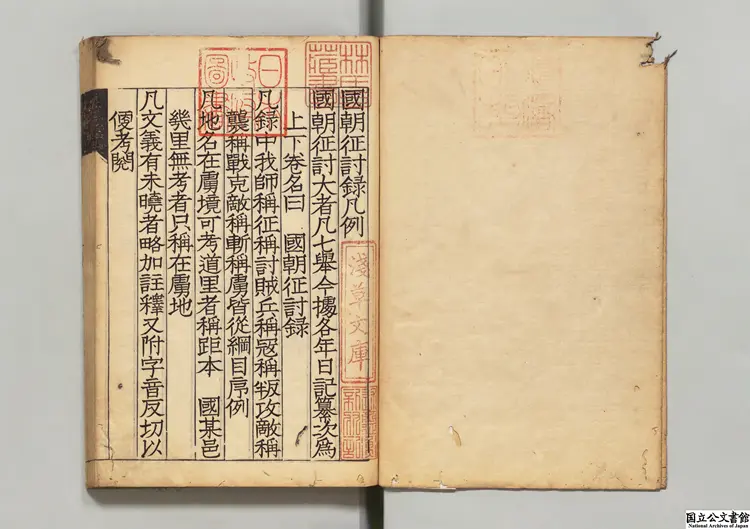 國朝征討録凡例
國朝征討大者凡七舉今據各年日記纂次爲
上下卷名曰 國朝征討録
凡録中我師稱征稱討賊兵稱冦稱叛攻敵稱
襲稱戰克敵稱斬稱虜皆從綱目序例
凡地名在虜境可考道里者稱距本 國某邑
幾里無考者只稱在虜地
凡文義有未曉者略加註釋又附字音反切以
便考閲
淺草文庫
国立公文書館
National Archives of Japan